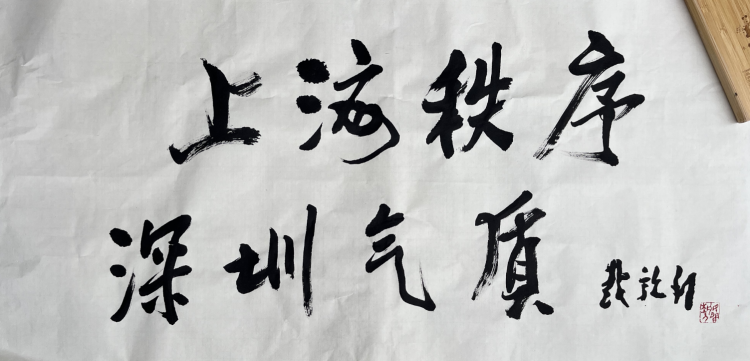 上海秩序
深圳气质